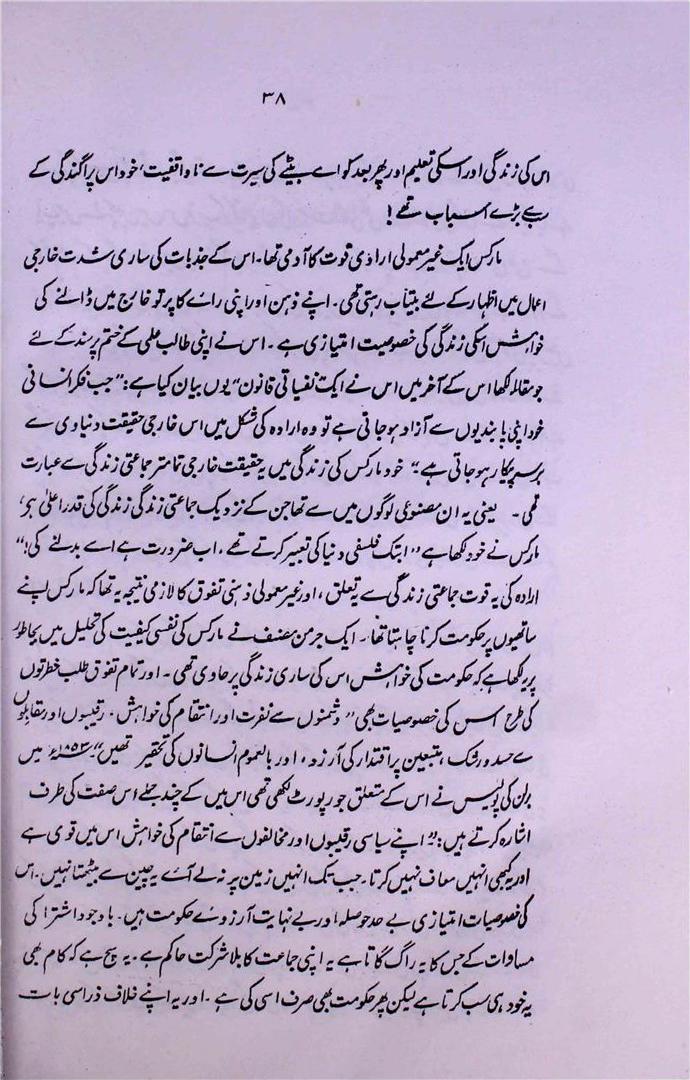 ۳۸
اس کی زندگی اور اسکی تعلیم اور پھر بعد کو اے بیٹے کی سیرت سے ناواقفیت، خود اس پراگندگی کے
بڑے اسباب تھے!
مارکس ایک غیر معمولی ارادی قوت کا آدمی تھا۔ اس کے جذبات کی ساری شدت خارجی
اعمال میں اظہار کے لئے بیتاب رہتی تھی۔ اپنے ذہن اور اپنی رائے کا پرتو خارج میں ڈالنے کی
خواہش اسکی زندگی کی خصوصیت امتیازی ہے۔ اس نے اپنی طالب علمی کے ختم پر سند کے لئے
جو مقالہ لکھا اس کے آخر میں اس نے ایک نفسیاتی قانون" یوں بیان کیا ہے:" جب فکر انسانی
خود اپنی پابندیوں سے آزاد ہو جاتی ہے تو وہ ارادہ کی شکل میں اس خارجی حقیقت دنیاوی سے
برسرپیکار ہو جاتی ہے۔" خود مارکس کی زندگی میں یہ حقیقت خارجی تمامتر جماعتی زندگی سے عبارت
تھی۔ یعنی یہ ان مصنوعی لوگوں میں سے تھا جن کے نزدیک جماعتی زندگی زندگی کی قدر اعلیٰ ہے،
مارکس نے خود لکھا ہے" ابتک فلسفی دنیا کی تعبیر کرتے تھے، اب ضرورت ہے اسے بدلنے کی!"
ارادہ کی یہ قوت جماعتی زندگی سے یہ تعلق، اور غیر معمولی ذہنی تفوق کا لازمی نتیجہ یہ تھا کہ مارکس اپنے
ساتھیوں پر حکومت کرنا چاہتا تھا۔ ایک جرمن مصنف نے مارکس کی نفسی کیفیت کی تحلیل میں بجا طور
پر لکھا ہے کہ حکومت کی خواہش اس کی ساری زندگی پر حاوی تھی۔ اور تمام تفوق طلب فطرتوں
کی طرح اس کی خصوصیات بھی" دشمنوں سے نفرت اور انتقام کی خواہش، رقیبوں اور مقابلوں
سے حسد و رشک، متبعین پر اقتدار کی آرزو، اور بالعموم انسانوں کی تحقیر تھیں"۔ ۱۸۵۳ء میں
برلن کی پولیس نے اس کے متعلق جو رپورٹ لکھی تھی اس میں کے چند جملے اس صفت کی طرف
اشارہ کرتے ہیں:" اپنے سیاسی رقیبوں اور مخالفوں سے انتقام کی خواہش اس میں قوی ہے
اور یہ کبھی انہیں معاف نہیں کرتا۔ جب تک انہیں زمین پر نہ لے آئے یہ چین سے بیٹھتا نہیں۔ اس
کی خصوصیات امتیازی بے حد حوصلہ اور بے نہایت آرزوئے حکومت ہیں۔ باوجود اشتراکی
مساوات کے جس کا یہ راگ گاتا ہے یہ اپنی جماعت کا بلا شرکت حاکم ہے۔ یہ سچ ہے کہ کام بھی
یہ خود ہی سب کرتا ہے لیکن پھر حکومت بھی صرف اسی کی ہے۔ اور یہ اپنے خلاف ذرا سی بات